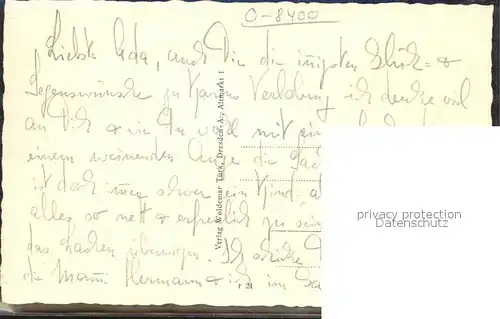 O-8400
Liebste Ada, auch Dir die innigsten Glück= &
Segenswünsche zu Karins Verlobung, ich denke viel
an Dich & wie Du wohl mit
einem weinenden Auge die
ist doch immer schwer ein Kind
alles so nett & erfreulich zu sein
das Lachen überwiegen. Ich
die Hermann & ich im
Verlag Woldemar Türk, Dresden-A., Altmarkt 1
r 21
privacy protection
Datenschutz